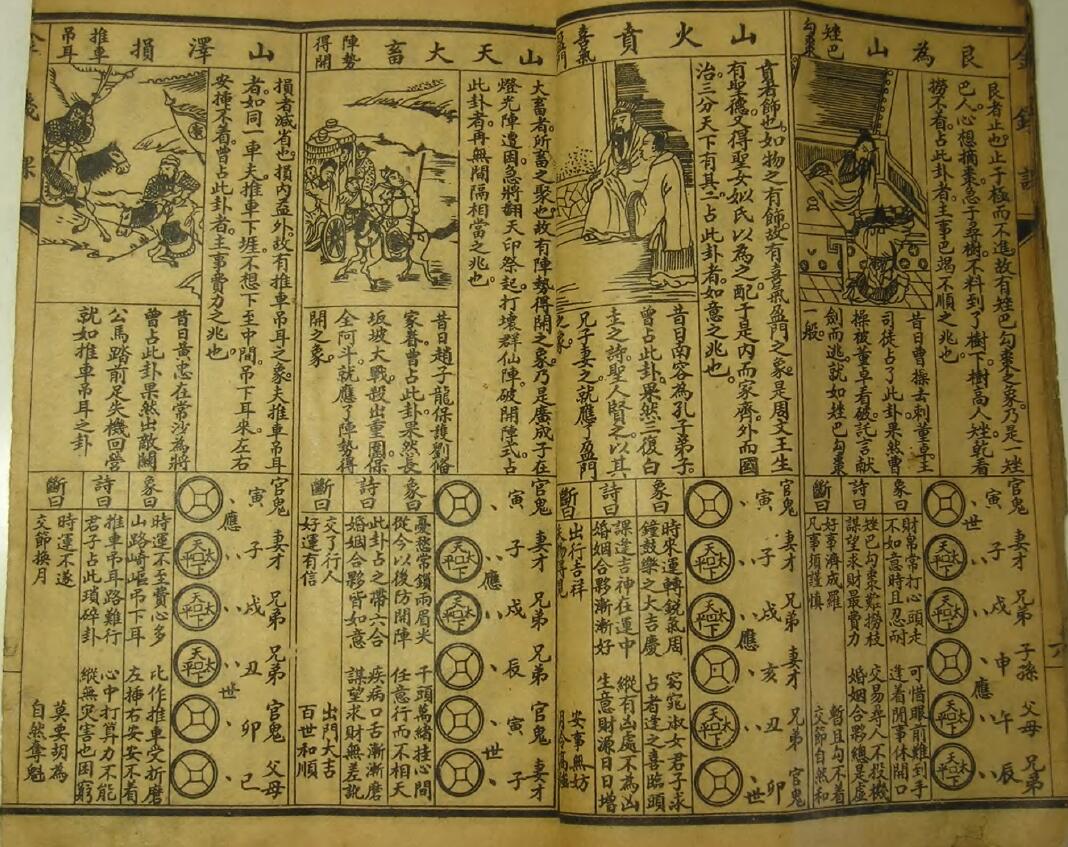 艮為山
矬巴
勾棗
艮者止也止于極而不進故有矬巴勾棗之象乃是一矬
巴人心想摘棗急于尋樹不料到了樹下樹高人矬乾看
撈不着占此卦者主事巴竭不順之兆也
昔日曹操去刺董卓王
司徒占了此卦果然曹
操被董卓看破託言献
劍而逃就如矬巴勾棗
一般
官鬼 妻才 兄弟 子孫 父母 兄弟
寅 子 戌 申 午 辰
世 應
太平天下
象曰
財帛常打心頭走 可惜眼前難到手
不如意時且忍耐 逢着閒事休開口
詩曰
矬巴勾棗難撈枝 交易尋人不投機
謀望求財最費力 婚姻合夥總是虛
斷曰
好事濟成羅 暫且勾不着
凡事須謹慎 交節自然和
山火賁
喜氣
盈門
賁者飾也如物之有飾故有喜氣盈門之象是周文王生
有聖德又得聖女姒氏以為之配于是內而家齊外而國
治三分天下有其二占此卦者如意之兆也
昔日南容為孔子弟子
曾占此卦果然三復白
圭之詩聖人賢之以其
兄子妻之就應了盈門
之象
官鬼 妻才 兄弟 妻才 兄弟 官鬼
寅 子 戌 亥 丑 卯
應 世
太平天下
象曰
時來運轉鋭氣周 窈窕淑女君子求
鐘鼓樂之大吉慶 占者逢之喜臨頭
詩曰
課逢吉神在運中 縱有凶處不為凶
婚姻合夥漸漸好 生意財源日日增
斷曰
出行吉祥 安事無妨
山天大畜
陣勢
得開
大畜者所畜之聚也故有陣勢得開之象乃是廣成子在
燈光陣遭困急將翻天印祭起打壞群仙陣破開陣式占
此卦者再無間隔相當之兆也
昔日趙子龍保護劉俻
家眷曾占此卦果然長
坂坡大戰殺出重圍保
全阿斗就應了陣勢得
開之象
官鬼 妻才 兄弟 兄弟 官鬼 妻才
寅 子 戌 辰 寅 子
應 世
太平天下
象曰
憂愁常鎖兩眉尖 千頭萬緒挂心間
從今以後防開陣 任意行而不相天
詩曰
此卦占之帶六合 疾病口舌漸漸磨
婚姻合夥皆如意 謀望求財無差訛
斷曰
交了行人 出門大吉
好運有信 百世和順
山澤損
推車
吊耳
損者減省也損內益外故有推車吊耳之象夫推車吊耳
者如同一車夫推車下堐不想下至中間吊下耳來左右
安揷不着嘗占此卦者主事費力之兆也
昔日黃忠在常沙為將
曾占此卦果然出敵關
公馬踏前足失機回營
就如推車吊耳之卦
官鬼 妻才 兄弟 兄弟 官鬼 父母
寅 子 戌 丑 卯 巳
應 世
太平天下
象曰
時運不至費心多 比作推車受折磨
山路崎嶇吊下耳 左揷右安安不着
詩曰
推車吊耳路難行 心中打算力不能
君子占此瑣碎卦 縱無灾害也困窮
斷曰
時運不遂 莫要胡為
交節換月 自然奪魁